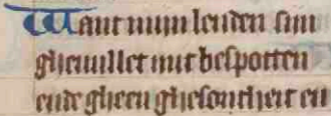 Want mijn lenden sijn
gheuullet mit bespotten
ende gheen ghesontheit en